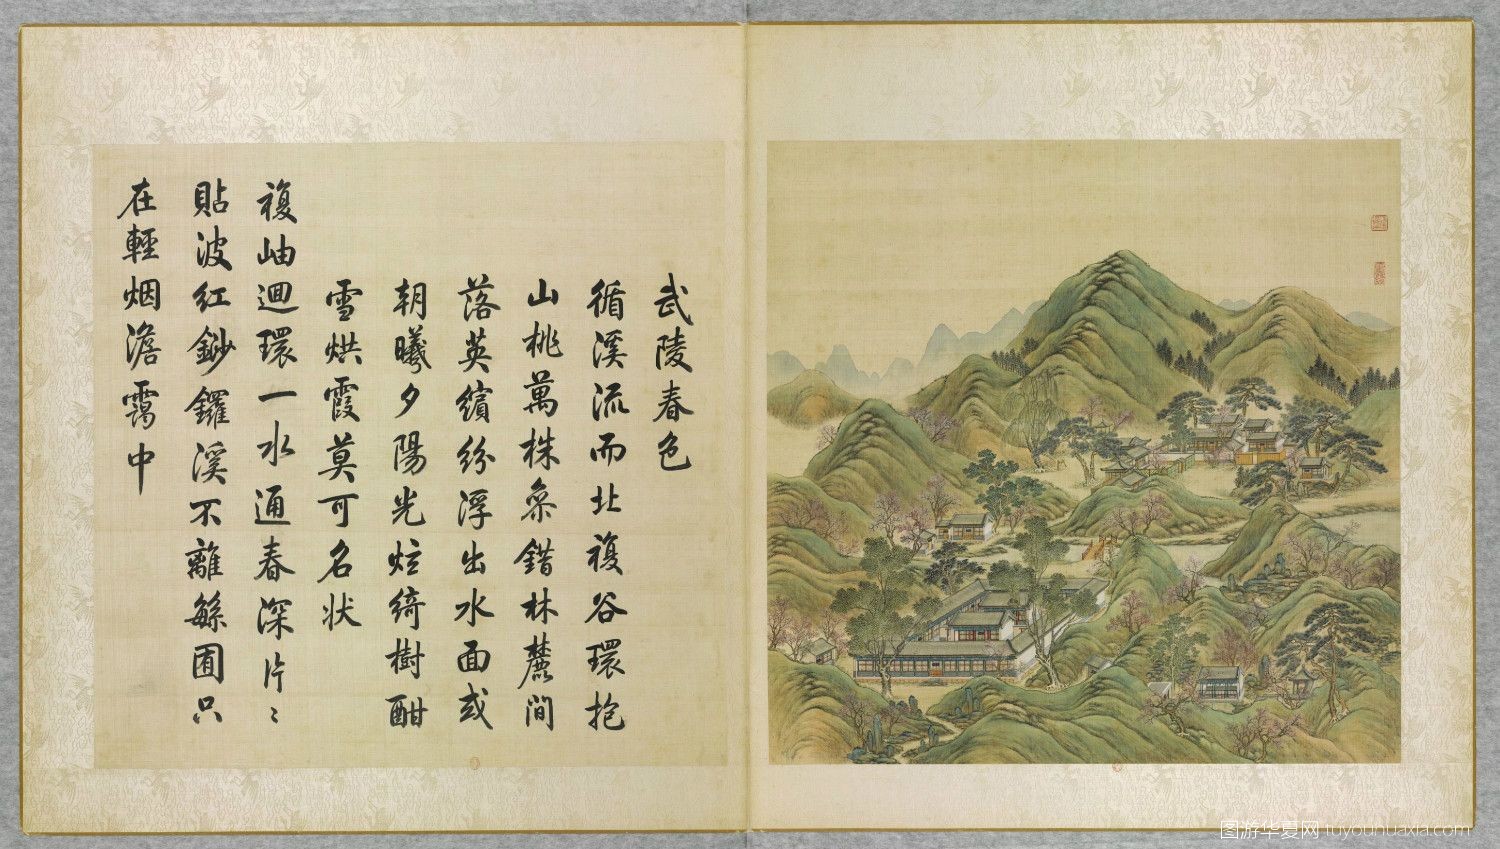 武陵春色
循溪流而北複谷環抱
山桃萬株叅錯林麓間
落英繽紛浮出水面或
朝曦夕陽光炫綺樹酣
雪烘霞莫可名狀
複岫迴環一水通春深片〻
貼波紅鈔鑼溪不離繇圃只
在輕烟澹靄中
图游华夏网 tuyouhuaxia.com